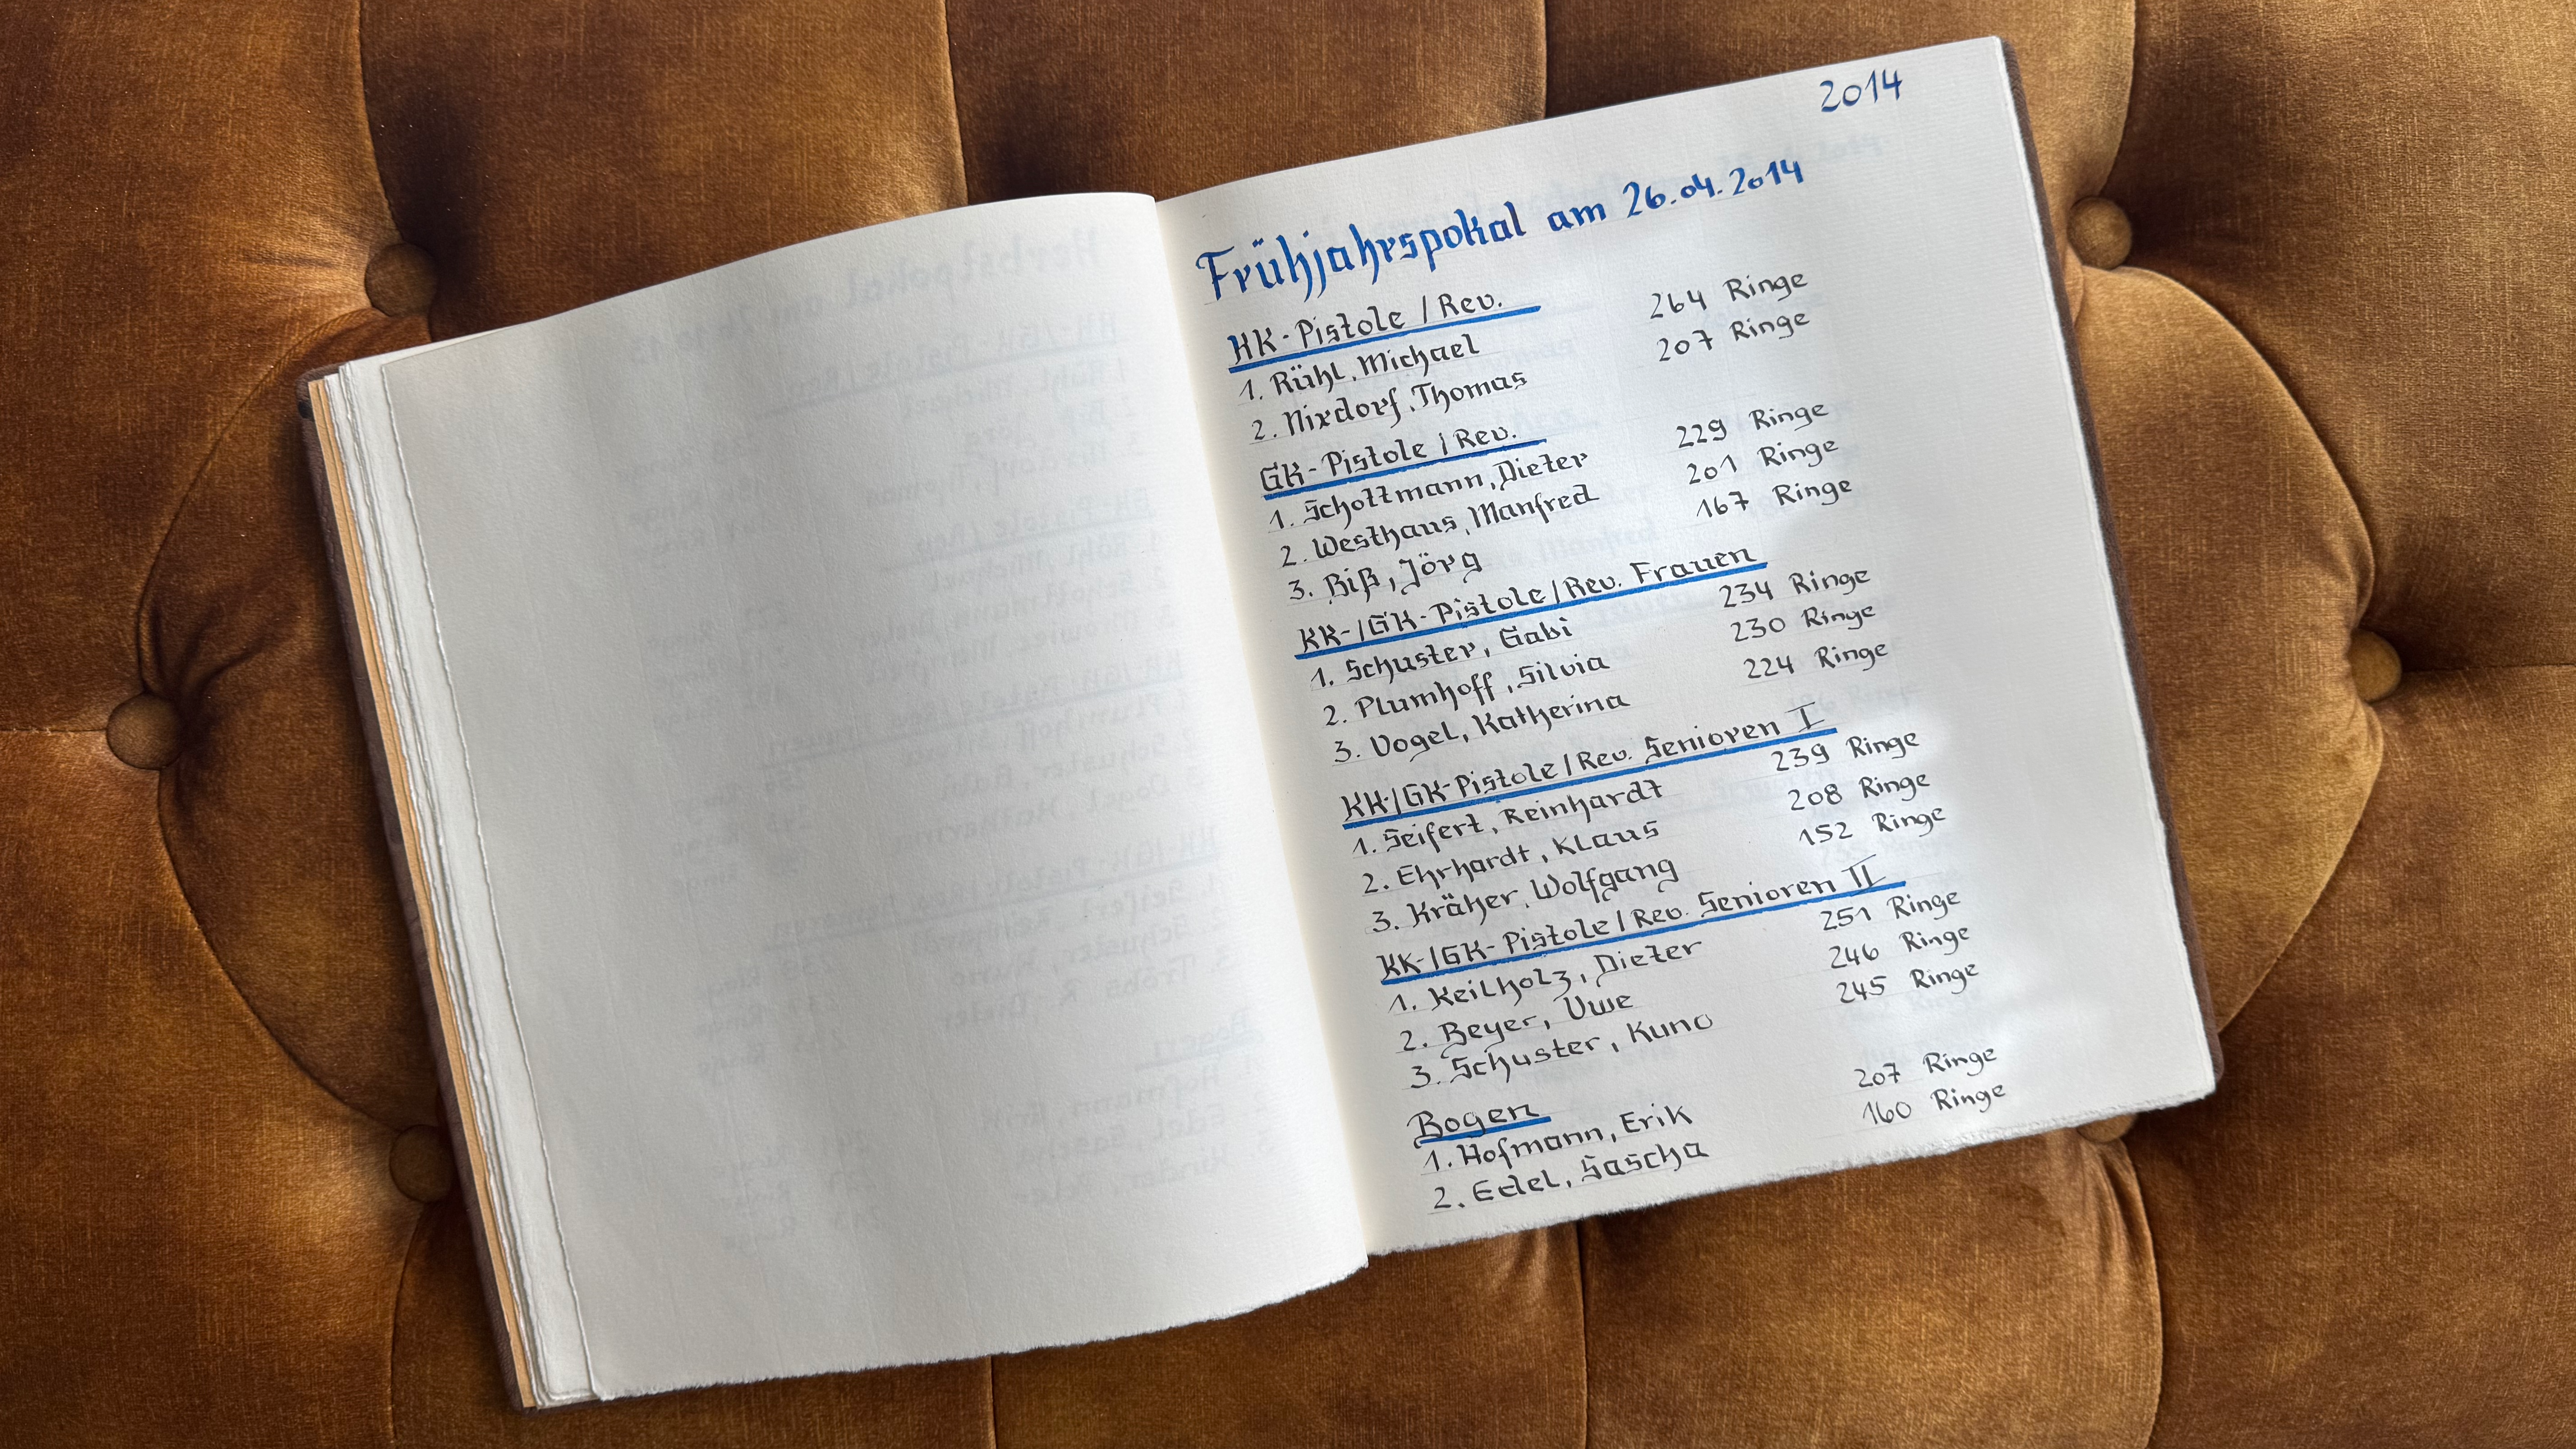 2014
Frühjahrspokal am 26.04.2014
KK-Pistole / Rev.
1. Rühl, Michael 264 Ringe
2. Nixdorf, Thomas 207 Ringe
GK-Pistole / Rev.
1. Schottmann, Dieter 229 Ringe
2. Westhaus, Manfred 201 Ringe
3. Biß, Jörg 167 Ringe
KK-/GK-Pistole/Rev. Frauen
1. Schuster, Gabi 234 Ringe
2. Plumhoff, Silvia 230 Ringe
3. Vogel, Katherina 224 Ringe
KK/GK-Pistole/Rev. Senioren I
1. Seifert, Reinhardt 239 Ringe
2. Ehrhardt, Klaus 208 Ringe
3. Kräher, Wolfgang 152 Ringe
KK-/GK-Pistole/Rev. Senioren II
1. Keilholz, Dieter 251 Ringe
2. Beyer, Uwe 246 Ringe
3. Schuster, Kuno 245 Ringe
Bogen
1. Hofmann, Erik 207 Ringe
2. Edel, Sascha 160 Ringe